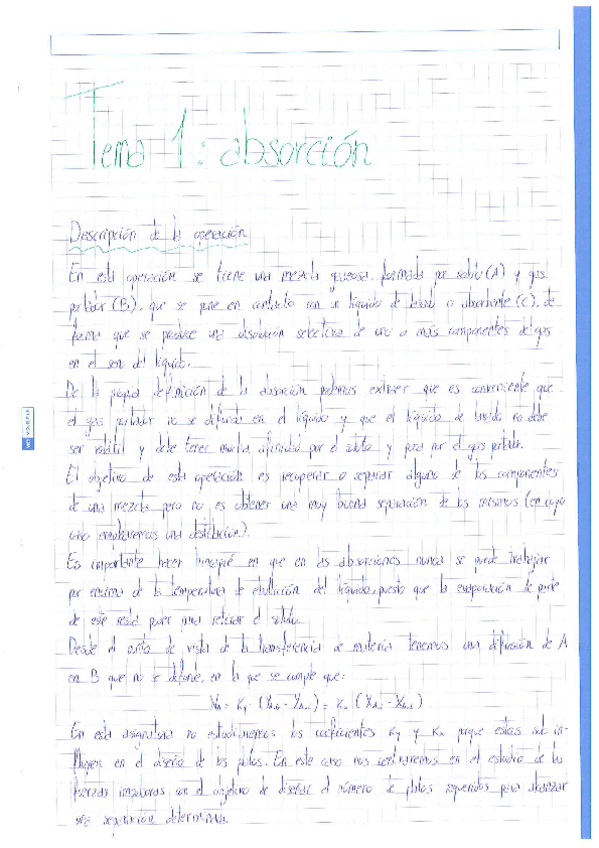 Tema 1: absorción
Descripción de la operación
En esta operación se tiene una mezcla gaseosa formada por soluto (A) y gas
portador (B), que se pone en contacto con un líquido de lavado o absorbente (C), de
forma que se produce una disolución selectiva de uno o más componentes del gas
en el seno del líquido.
De la propia definición de la absorción podemos extraer que es conveniente que
el gas portador no se difunda en el líquido y que el líquido de lavado no debe
ser volátil y debe tener mucha afinidad por el soluto y poca por el gas portador.
El objetivo de esta operación es recuperar o separar alguno de los componentes
de una mezcla pero no es obtener una muy buena separación de los mismos (en cuyo
caso emplearemos una destilación).
Es importante hacer hincapié en que en las absorciones nunca se puede trabajar
por encima de la temperatura de ebullición del líquido, puesto que la evaporación de parte
de este resta poder para retirar el soluto.
Desde el punto de vista de la transferencia de materia tenemos una difusión de A
en B que no se difunde, en la que se cumple que:
En esta asignatura no estudiaremos los coeficientes Ky y Kx porque estos solo in-
fluyen en el diseño de los platos. En este caso nos centraremos en el estudio de las
fuerzas impulsoras con el objetivo de diseñar el número de platos requeridos para alcanzar
una separación determinada.